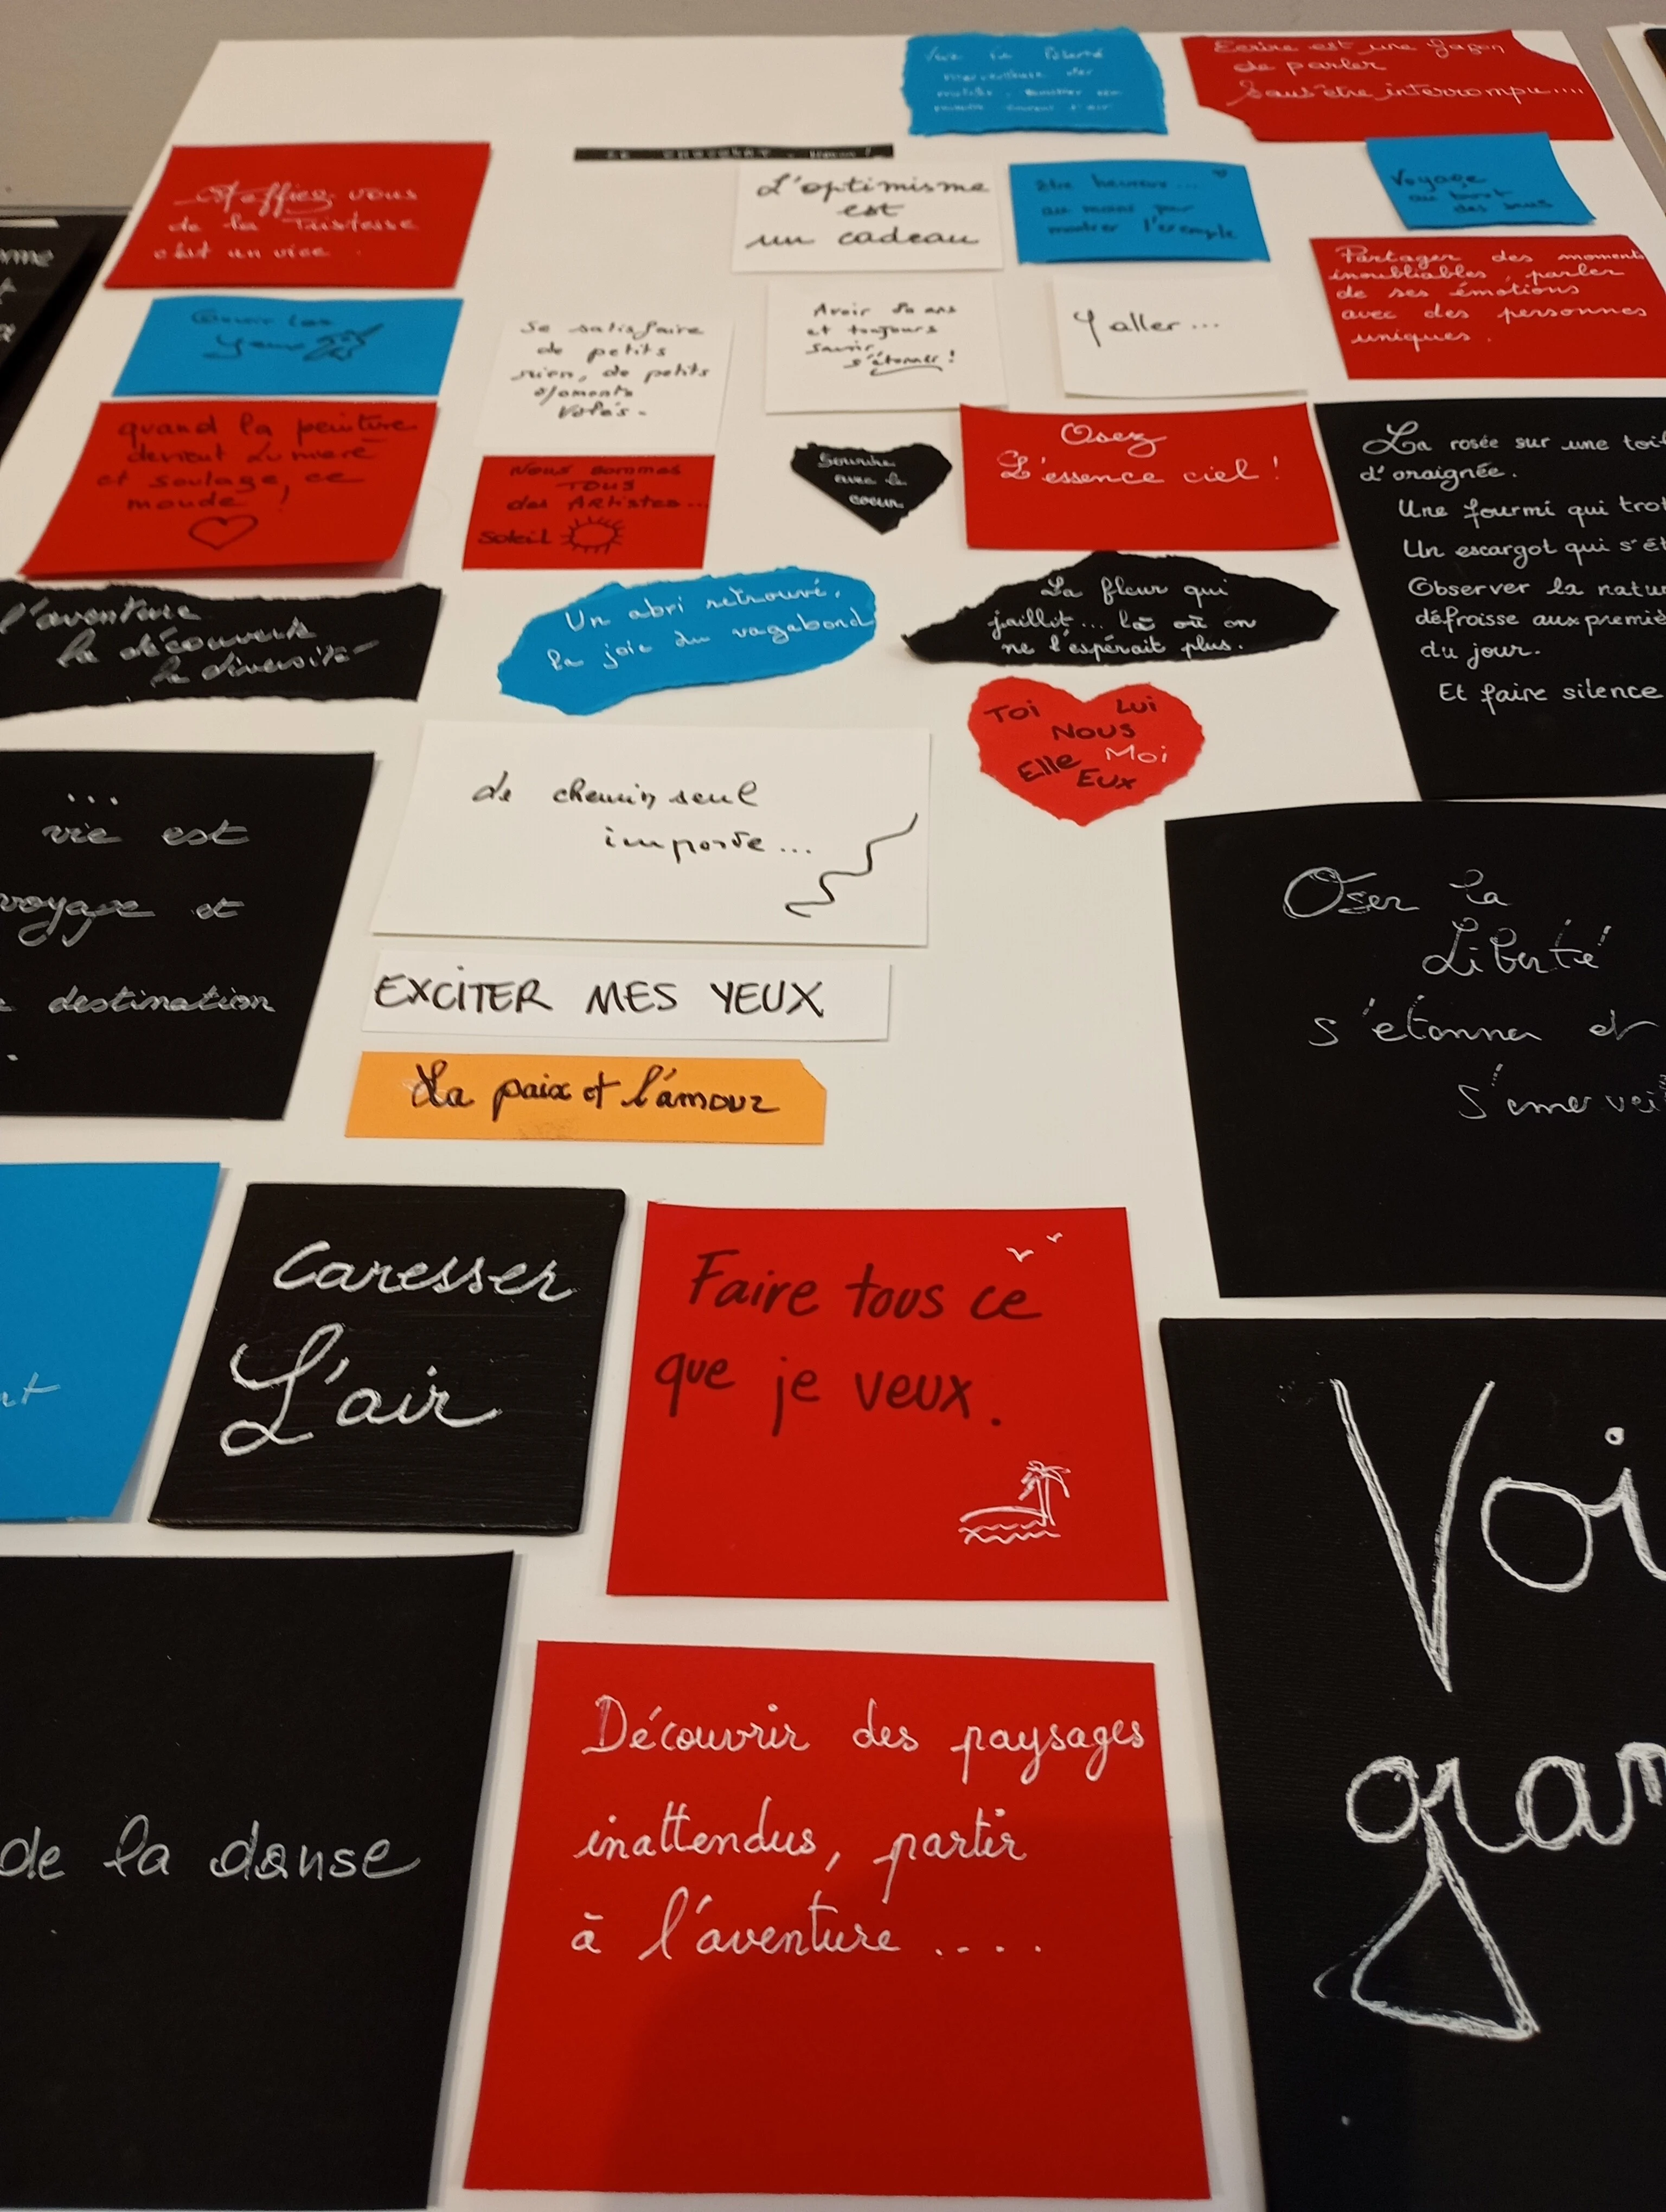 Ecrire est une façon
de parler
sans être interrompu....
Méfiez vous
de la Tristesse
c'est un vice.
L'optimisme
est
un cadeau
être heureux...
au moins pour
montrer l'exemple
Voyage
au bout
des sens
Partager des moments
inoubliables, parler
de ses émotions
avec des personnes
uniques.
yeux
Se satisfaire
de petits
rien, de petits
moments
volés.
Avoir 80 ans
et toujours
savoir
s'étonner!
Y aller...
quand la peinture
devient Lumière
et soulage, ce
monde!
Nous sommes
TOUS
des Artistes...
Soleil
Sourire
avec le
coeur
Osez
L'essence ciel!
La rosée sur une toil
d'araignée.
Une fourmi qui trot
Un escargot qui s'ét
Observer la natur
défroisse aux premiè
du jour.
Et faire silence
l'aventure
la découverte
la diversité
Un abri retrouvé,
la joie du vagabond
La fleur qui
jaillit... là où on
ne l'espérait plus.
Toi Lui
Nous
Elle Moi
Eux
...
vie est
voyage et
destination
.
le chemin seul
importe...
Oser la
Liberté
s'étonner et
s'émervei
EXCITER MES YEUX
La paix et l'amour
Caresser
L'air
Faire tous ce
que je veux.
Voi
gran
de la danse
Découvrir des paysages
inattendus, partir
à l'aventure....